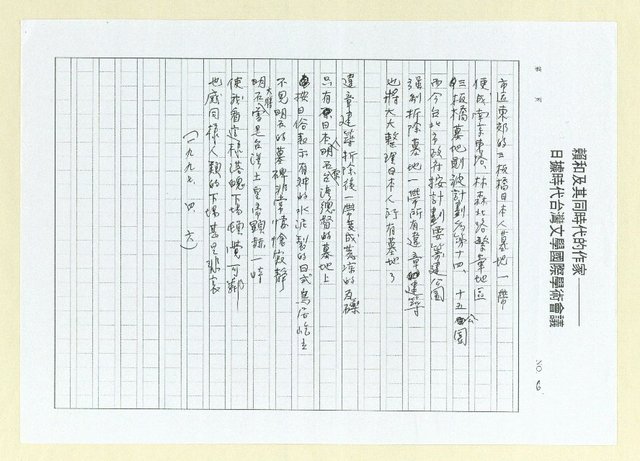 賴和及其同時代的作家——
日據時代台灣文學國際學術會議
NO. 6
市區東郊的三板橋日本人墓地一帶
便成南京東路、林森北路繁華地區
三板橋墓地則被計劃為第十四、十五公園
而今台北市政府按計劃要籌建公園
強制拆除墓地一帶所有違章建築
也將大大整理日本人所有墓地了
違章建築拆除後一帶變成荒涼的瓦礫
只有日本明石台灣總督的墓地上
按日俗表示有鄉的水泥製的日式鳥居屹立
不見明石的墓碑非常悽愴寂靜
明石大將雖是台灣土皇帝顯赫一時
使我看這樣落魄下場頓覺可鄰
也處同樣人類的下場甚是悲哀
(一九九七、四、六)